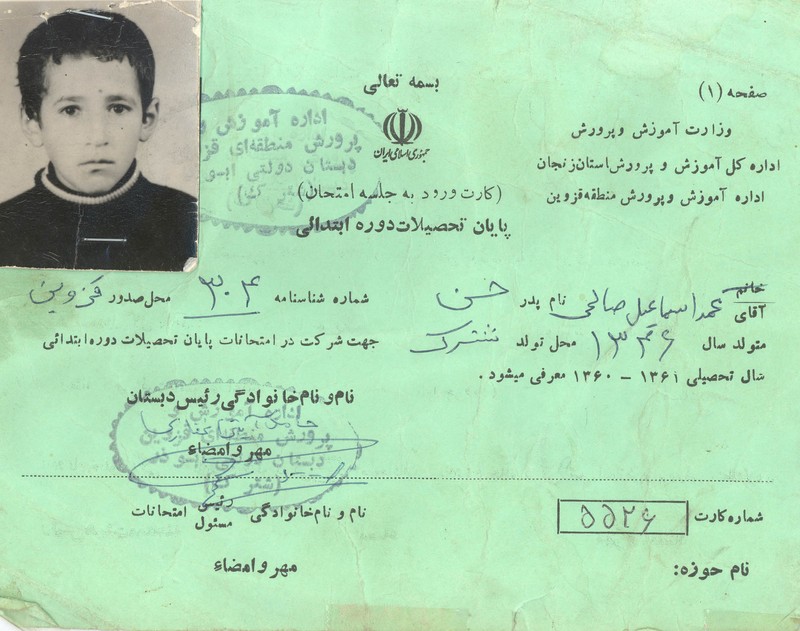 بسمه تعالی
صفحه (۱)
جمهوری اسلامی ایران
وزارت آموزش و پرورش
اداره کل آموزش و پرورش استان زنجان
اداره آموزش و پرورش منطقه قزوین
(کارت ورود به جلسه امتحان)
پایان تحصیلات دوره ابتدائی
اداره آموزش و
پرورش منطقه‌ای قزو
دبستان دولتی ابو
خانم
آقای محمد اسماعیل صالحی نام پدر حسن شماره شناسنامه ۳۰۴ محل صدور قزوین
متولد سال ۱۳۴۶ محل تولد شترک جهت شرکت در امتحانات پایان تحصیلات دوره ابتدائی
سال تحصیلی ۱۳۶۱ – ۱۳۶۰ معرفی میشود .
نام و نام خانوادگی رئیس دبستان
اداره آموزش و
پرورش منطقه‌ای قزوین
مهر و امضاء
دبستان دولتی
شماره کارت ۵۵۲۶
نام و نام خانوادگی رئیس مسئول امتحانات
نام حوزه:
مهر و امضاء